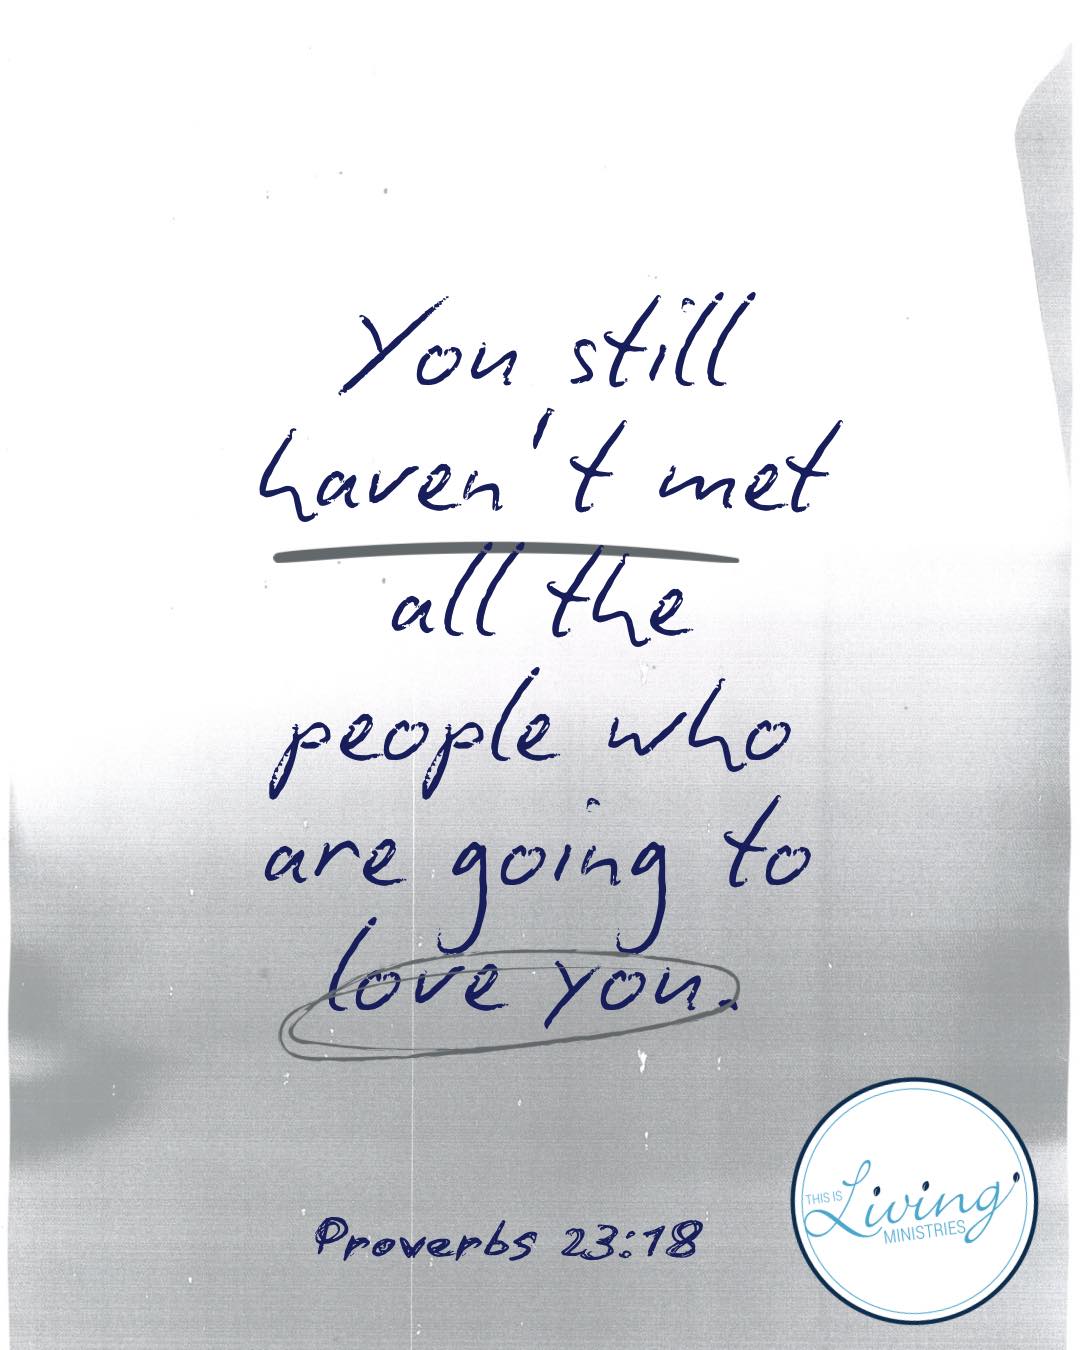 You still
haven't met
all the
people who
are going to
love you.
Proverbs 23:18
THIS IS
Living
MINISTRIES